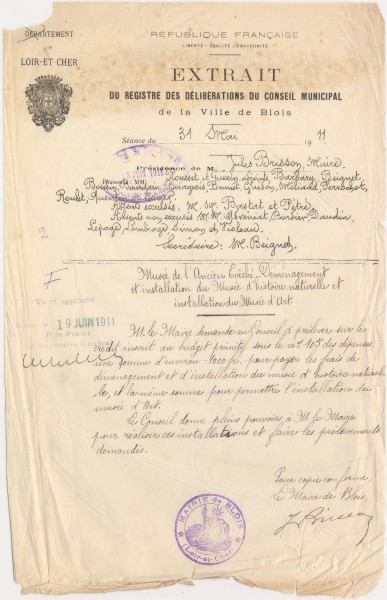 DÉPARTEMENT
LOIR-ET-CHER
RÉPUBLIQUE FRANÇAISE
LIBERTÉ - ÉGALITÉ - FRATERNITÉ
EXTRAIT
DU REGISTRE DES DÉLIBÉRATIONS DU CONSEIL MUNICIPAL
de la Ville de Blois
Séance du 31 Mai 1911
Présidence de M. Jules Bresson, Maire
Présents MM. Rousset et Guérin adjoints, Barbary, Beignet,
Bourgeois, Brunet, Perrochot,
Absents excusés: M. M. Brystat et Pétré
Absents non excusés M. M. Daudin,
Lepage,
Secrétaire: M. Beignet
Musée de l'Ancien Evêché. Déménagement
et installation du Musée d'histoire naturelle et
installation du Musée d'Art.
2
F
Vu et approuvé
19 JUIN 1911
M. le Maire demande au Conseil à prélever sur le
crédit inscrit au budget primitif sous le n° 105 des dépenses
une somme d'environ 1000 f. pour payer les frais de
déménagement et d'installation du musée d'histoire naturel-
le, et la même somme pour permettre l'installation du
musée d'Art.
Le Conseil donne pleins pouvoirs à M. le Maire
pour réaliser ces installations et faire les prélèvements
demandés.
Pour copie conforme
Le Maire de Blois,
MAIRIE de BLOIS
(Loir-et-Cher)